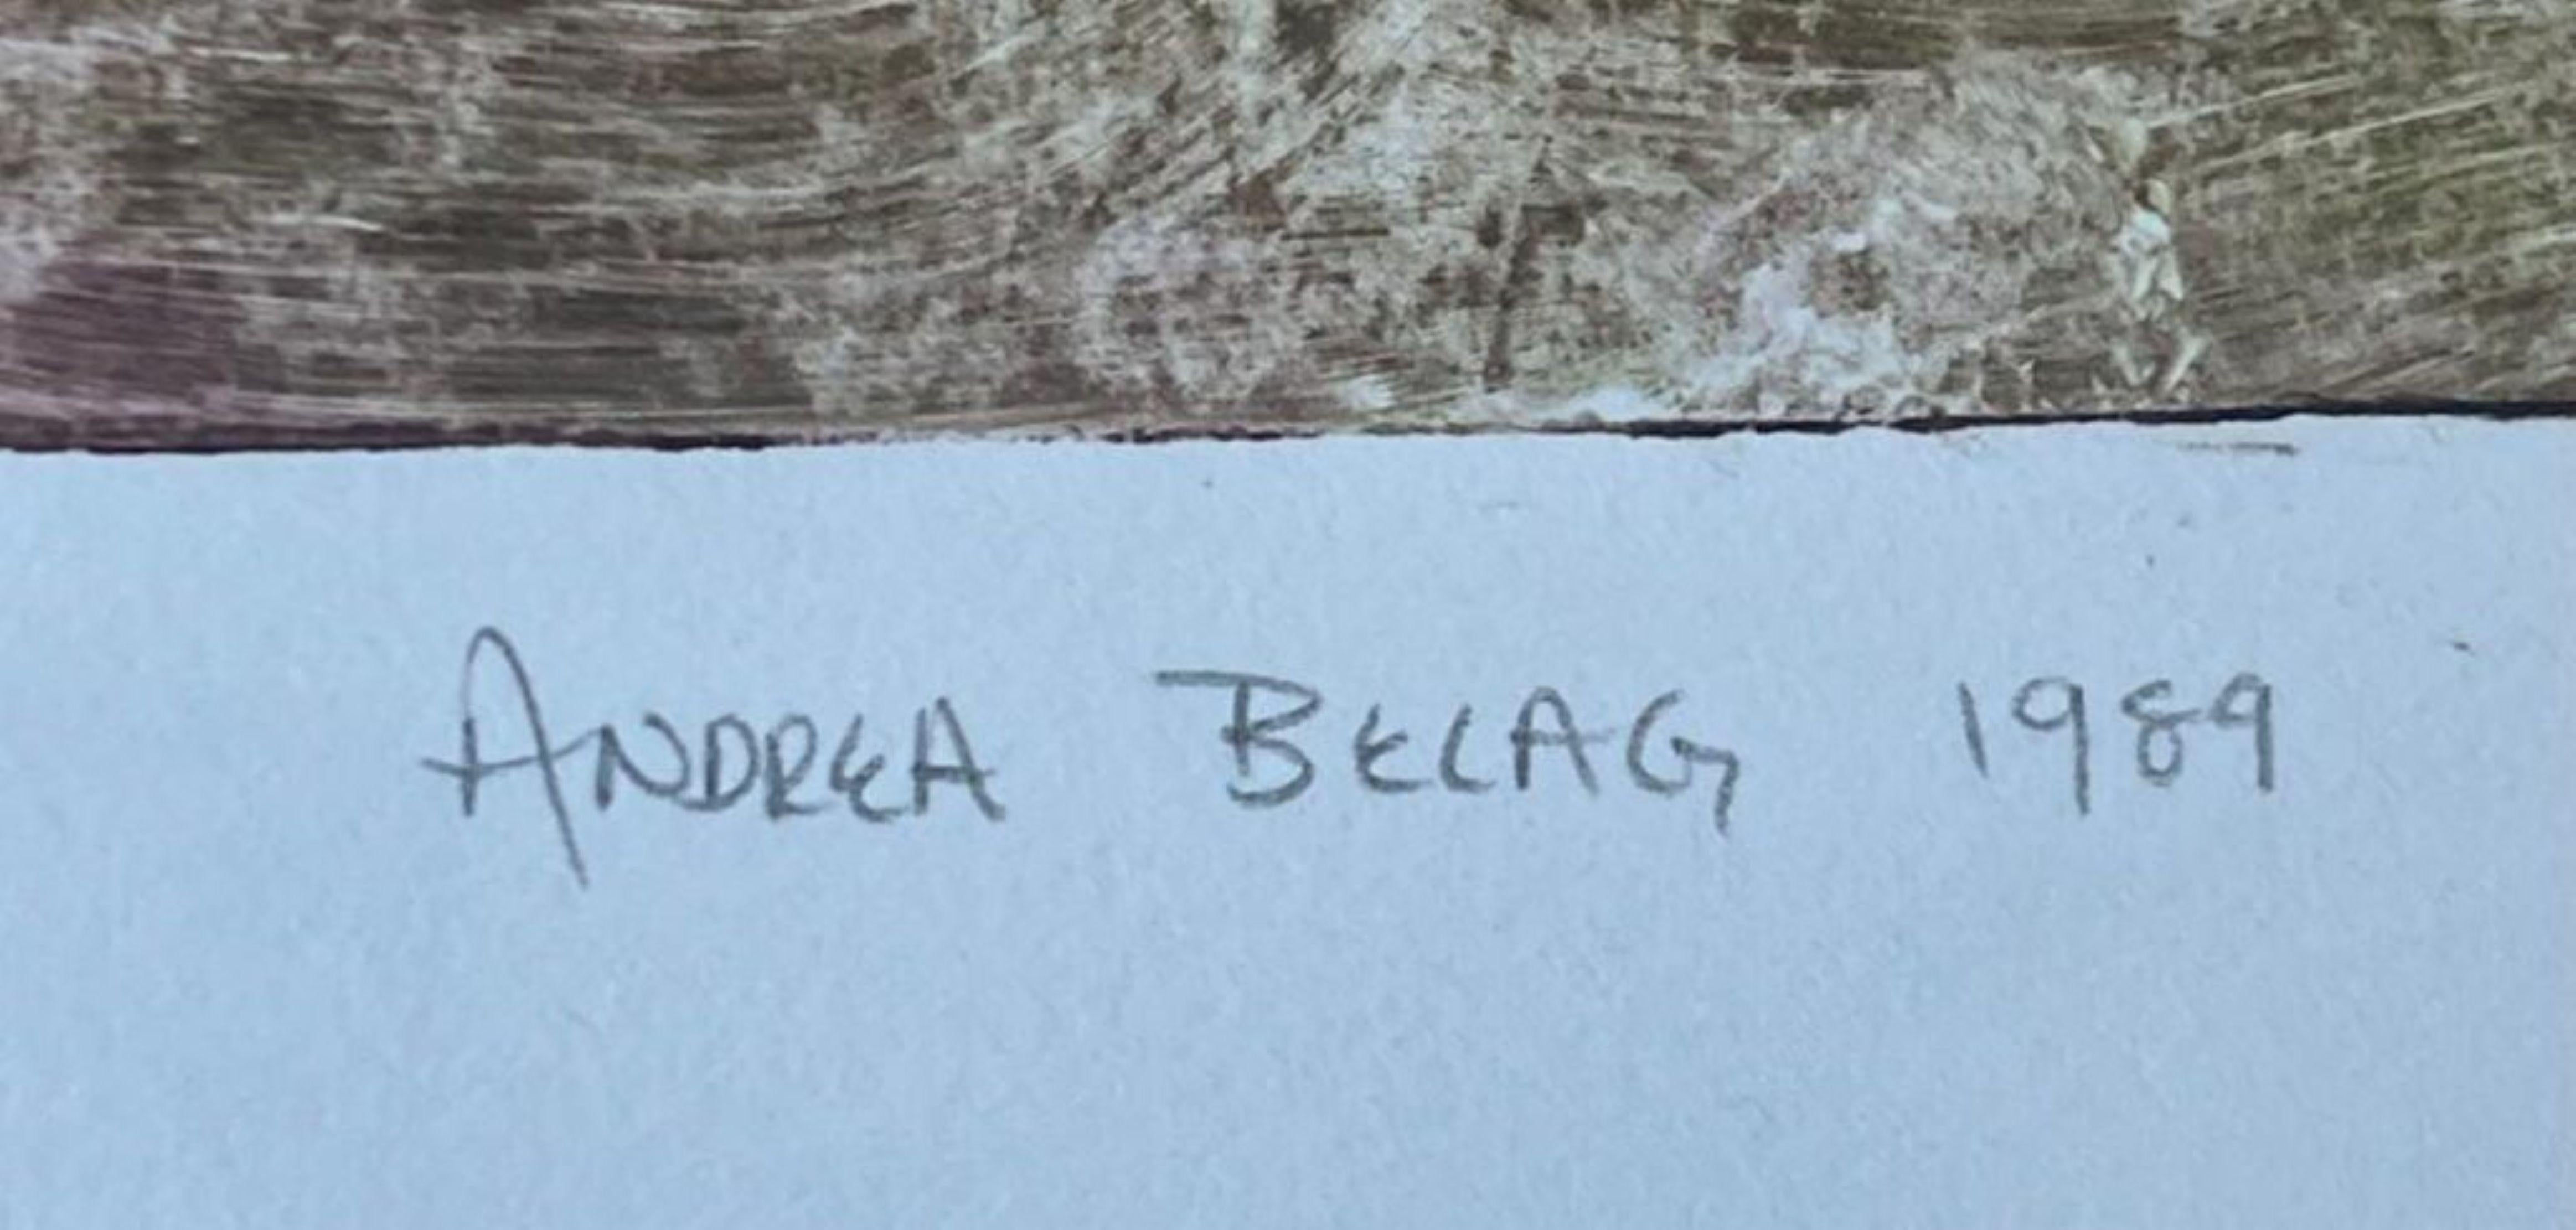 ANDREA BELAG 1989